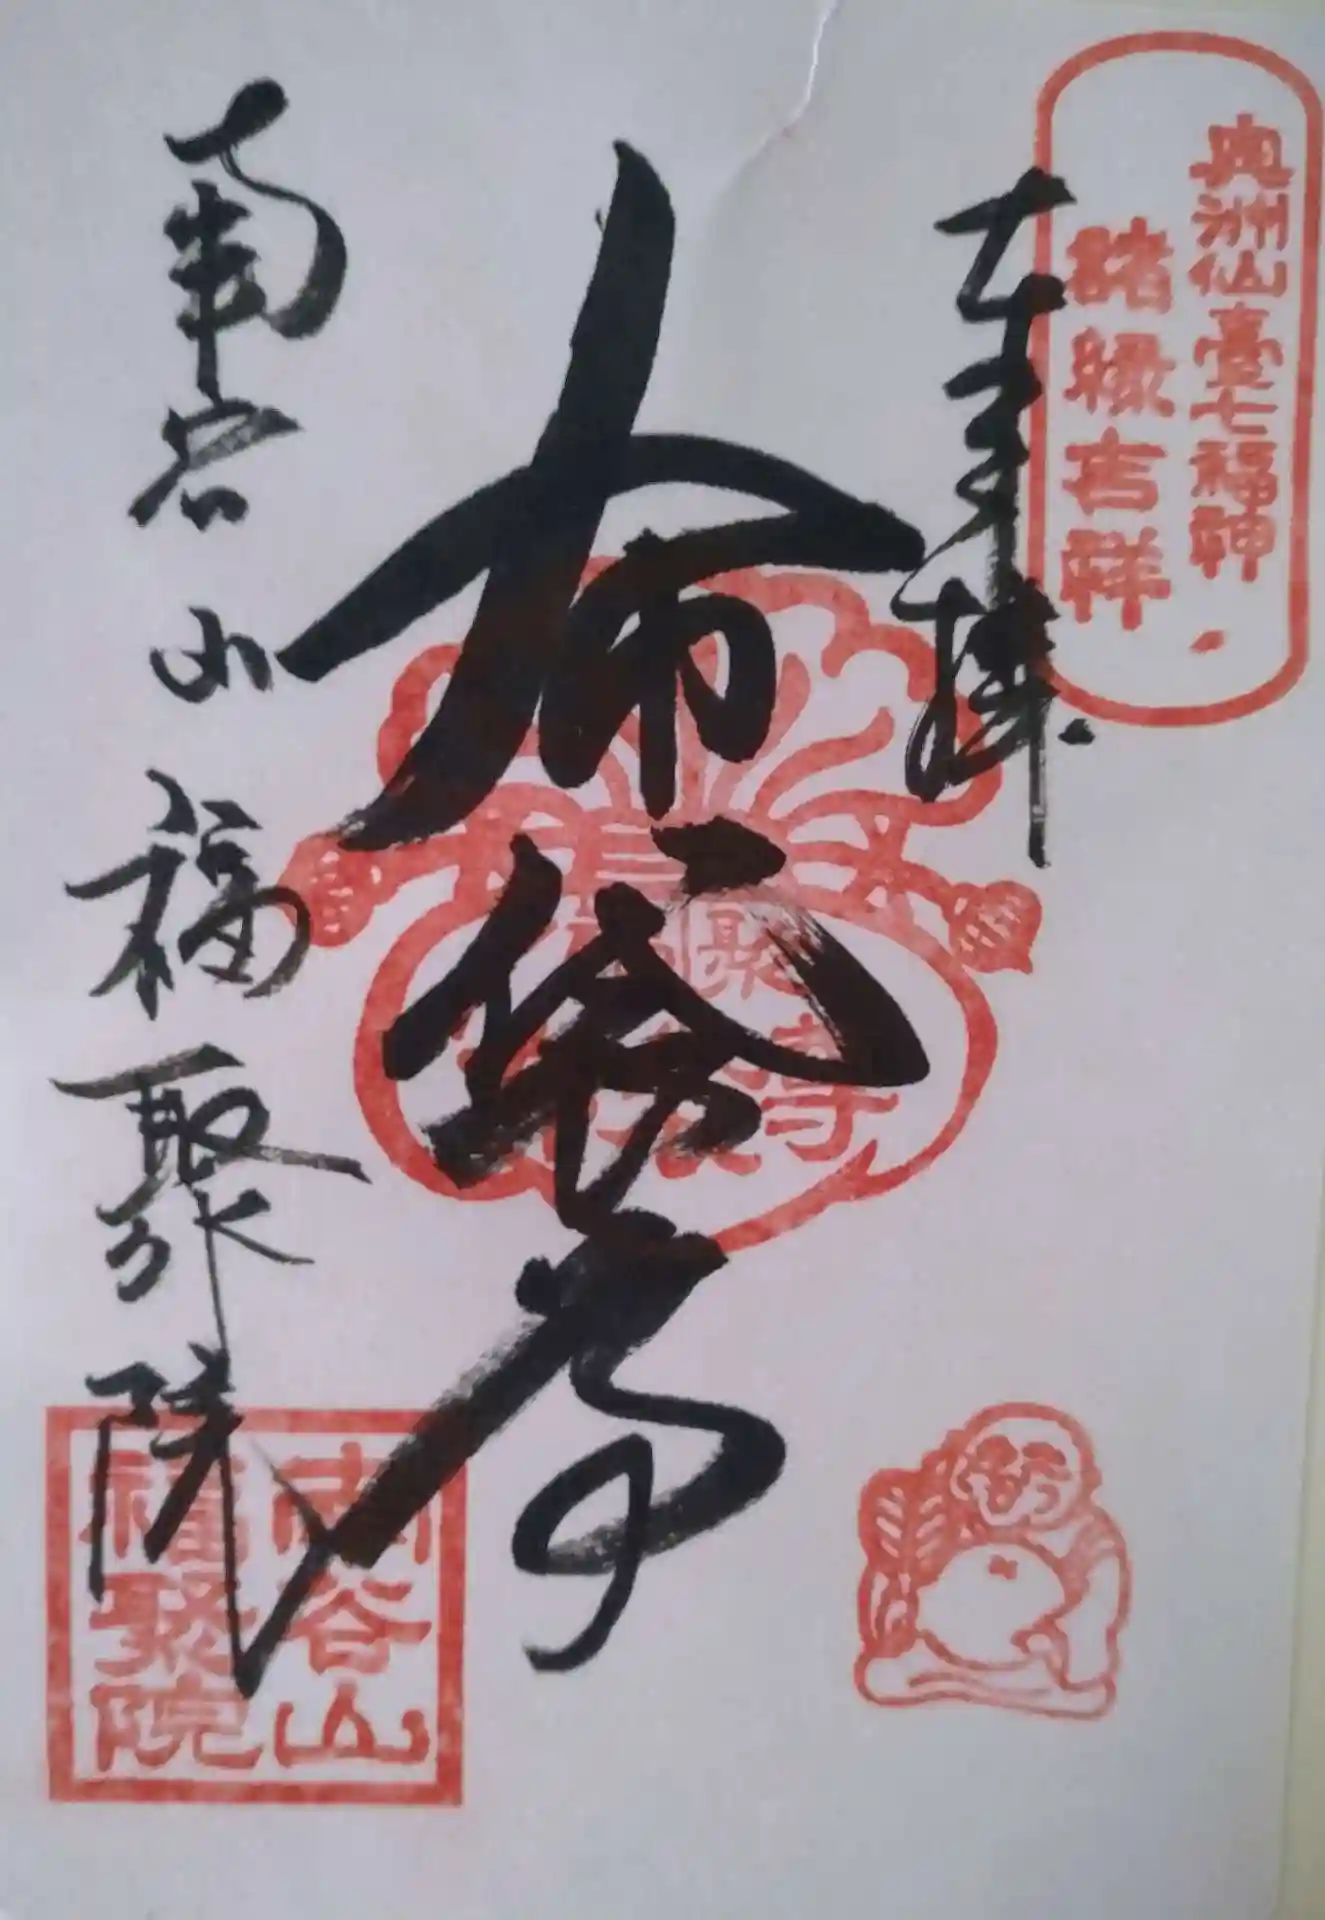 奥州仙臺七福神
諸縁吉祥
奉拝
布袋尊
南谷山
福聚院
南谷山
福聚院